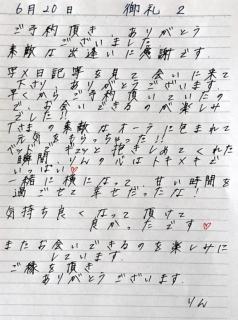 6月20日 御礼 2
ご予約頂き ありがとう
ございました
素敵な出逢いに感謝です
写メ日記等を見て会いに来て
下さり ありがとうございます
早くからご予約頂いていたの
で、お会いできるのが楽しみ
でした!!
Tさまの素敵なオーラに包まれて
元気をもらっちゃった!!
ベッドで ギュッと抱きしめてくれた
瞬間、りんの心はトキメキで
いっぱい♡
一緒に横になって、甘い時間を
過ごせて幸せだったな!
気持ち良くなって頂けて
良かったです♡
またお会いできるのを楽しみに
しています
ご縁を頂き
ありがとうございます
りん